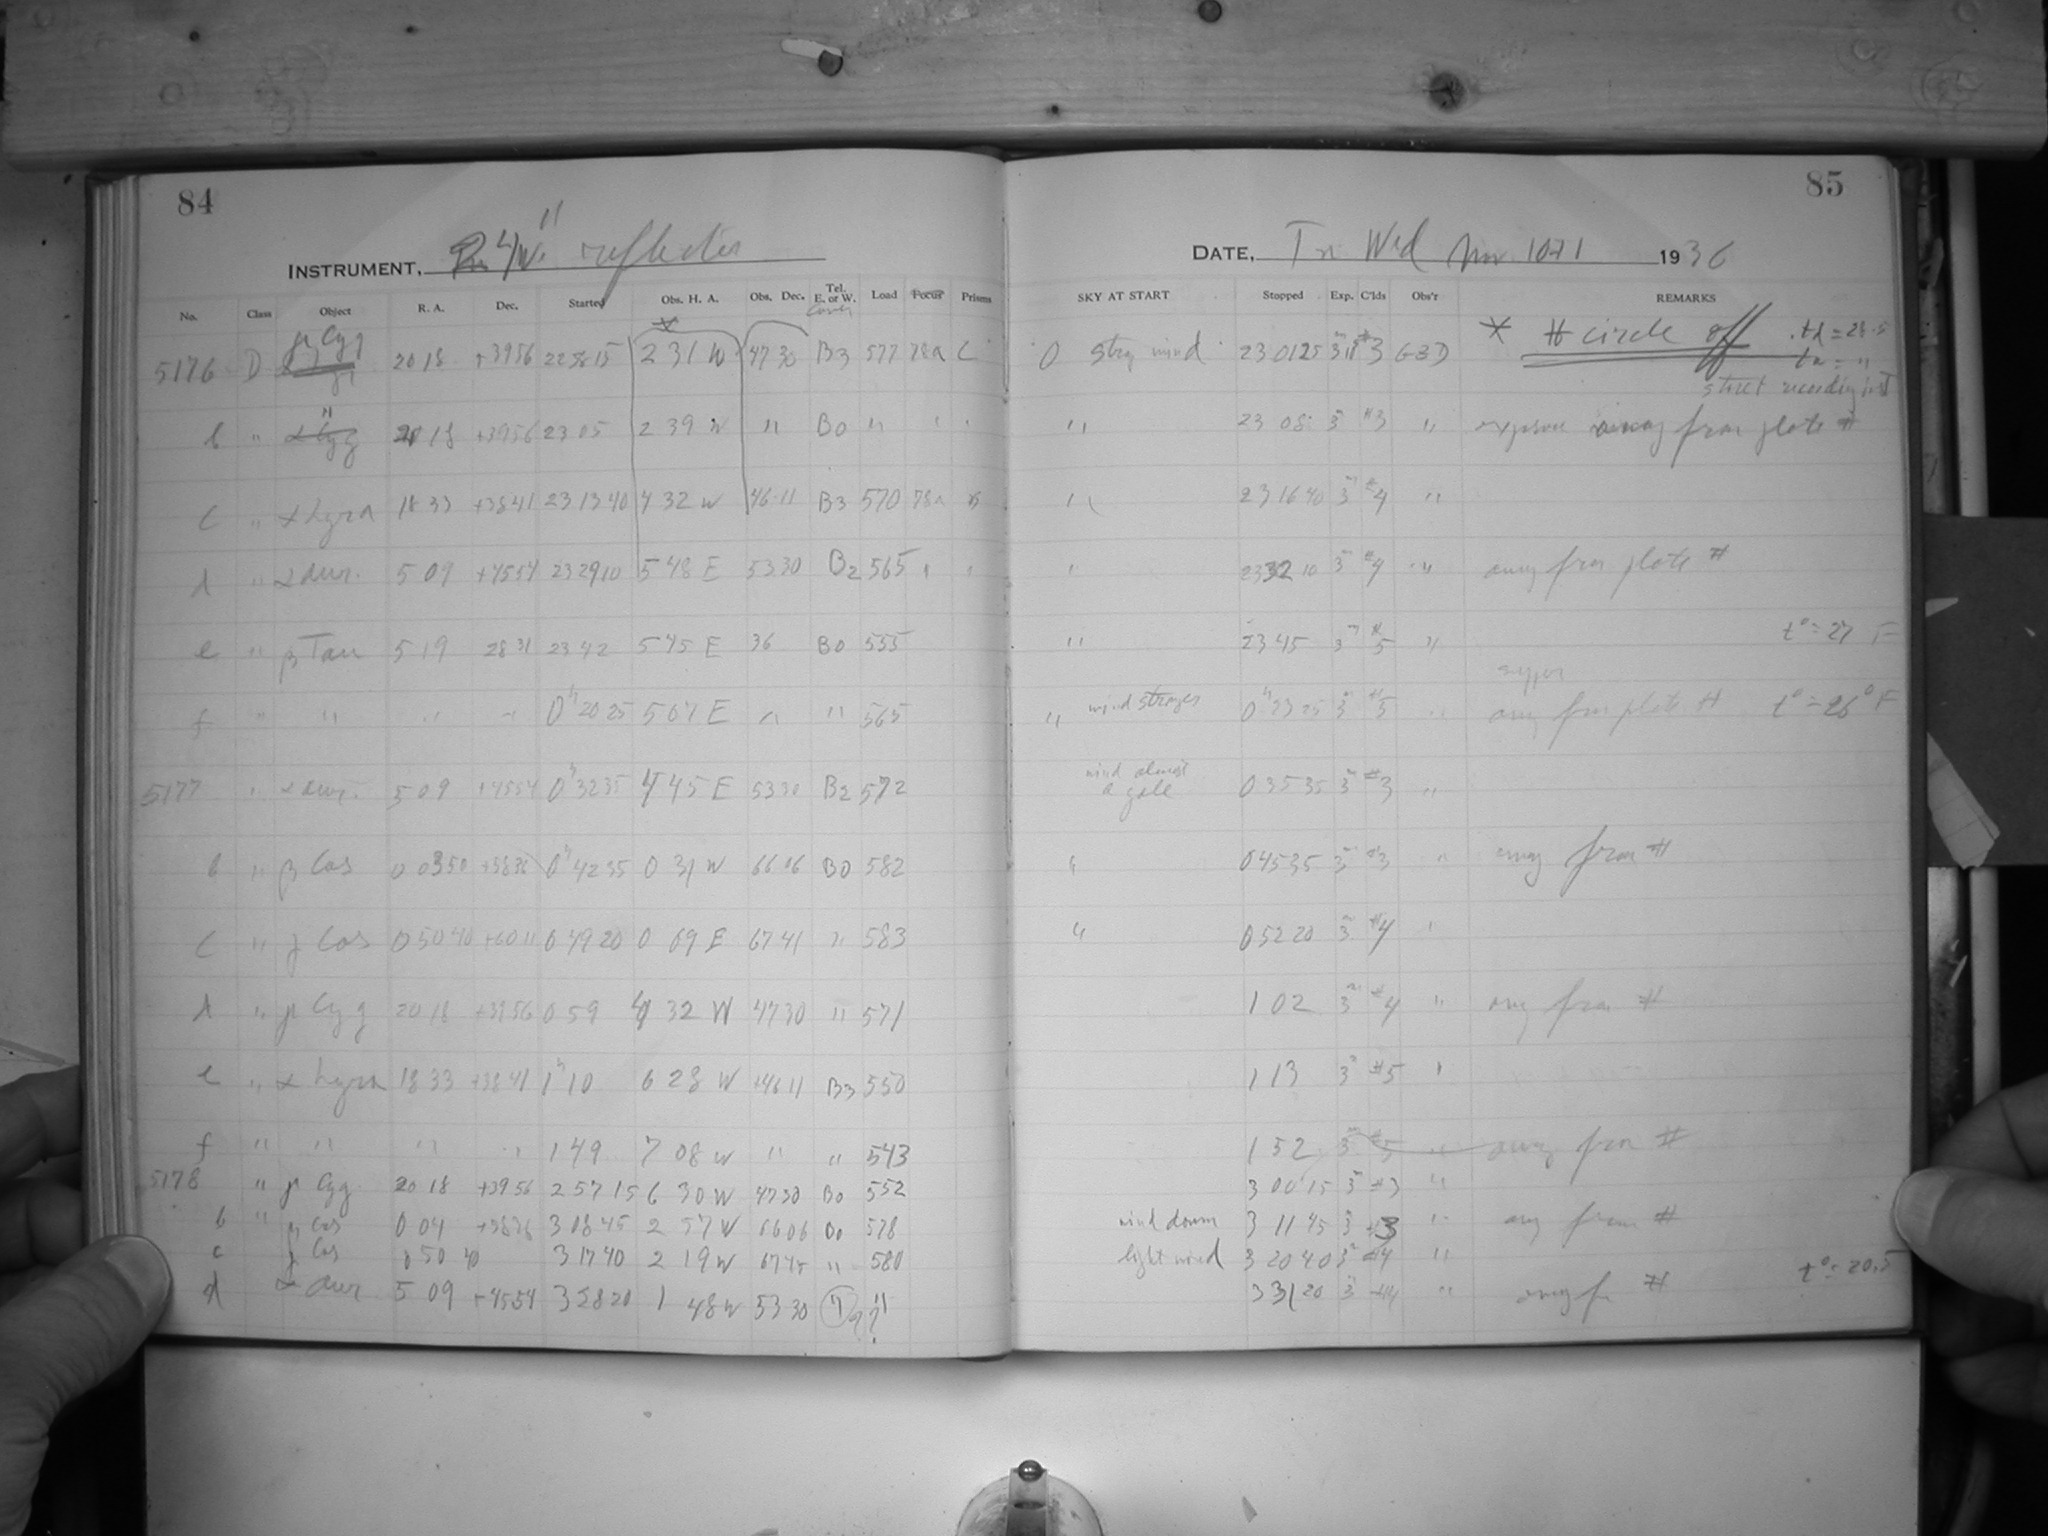 84
85
INSTRUMENT, reflector
DATE, Tu Wed Nov 10-11 1936
No. Class Object R. A. Dec. Started Obs. H. A. Obs. Dec. Tel. E. or W. Load Focus Prisms SKY AT START Stopped Exp. C'lds Obs'r REMARKS
cover
5176 D γ Cyg 20 18 +39 56 22 58 15 2 31 W 47 30 B3 577 78a C 0 strg wind 23 01 25 #3 * H circle off
b " " 18 +39 56 23 05 2 39 W " B0 " " 23 08 3 #3 " exposure away from plate #
c " α Lyra 18 33 +38 41 23 13 40 4 32 W 46 11 B3 570 78a 23 16 40 3m #4 "
d " α Aur. 5 09 +45 54 23 29 10 5 48 E 53 30 B2 565 23 32 10 3m #4 " away from plate #
e " β Tau 5 19 28 31 23 42 5 45 E 36 B0 555 " 23 45 3m #5 " t° = 27 F
f " " " " 0h 20 25 5 07 E " " 565 " wind stronger 0h 23 25 3m #5 " away from plate # t° = 26° F
5177 " α Aur. 5 09 +45 54 0h 32 35 4 45 E 53 30 B2 572 wind almost a gale 0 35 35 3m #3 "
b " β Cas 0 03 50 +58 36 0h 42 35 0 31 W 66 06 B0 582 " 0 45 35 3m #3 " away from #
c " γ Cas 0 50 40 +60 11 0 49 20 0 09 E 67 41 " 583 " 0 52 20 3m #4 "
d " γ Cyg 20 18 +39 56 0 59 4 32 W 47 30 " 571 1 02 3m #4 " away from #
e " α Lyra 18 33 +38 41 1h 10 6 28 W +46 11 B3 550 1 13 3m #5 "
f " " " " 1 49 7 08 W " " 543 1 52 3m #5 " away from #
5178 " γ Cyg. 20 18 +39 56 2 57 15 6 30 W 47 30 B0 552 3 00 15 3m #3 "
b " β Cas 0 04 +58 36 3 08 45 2 57 W 66 06 B0 578 wind down 3 11 45 3 #3 " away from #
c γ Cas 0 50 40 3 17 40 2 19 W " 580 light wind 3 20 40 3m #4 "
d α Aur 5 09 +45 54 3 28 20 1 48 W 53 30 3 31 20 3m #4 " away fr # t° = 20.5